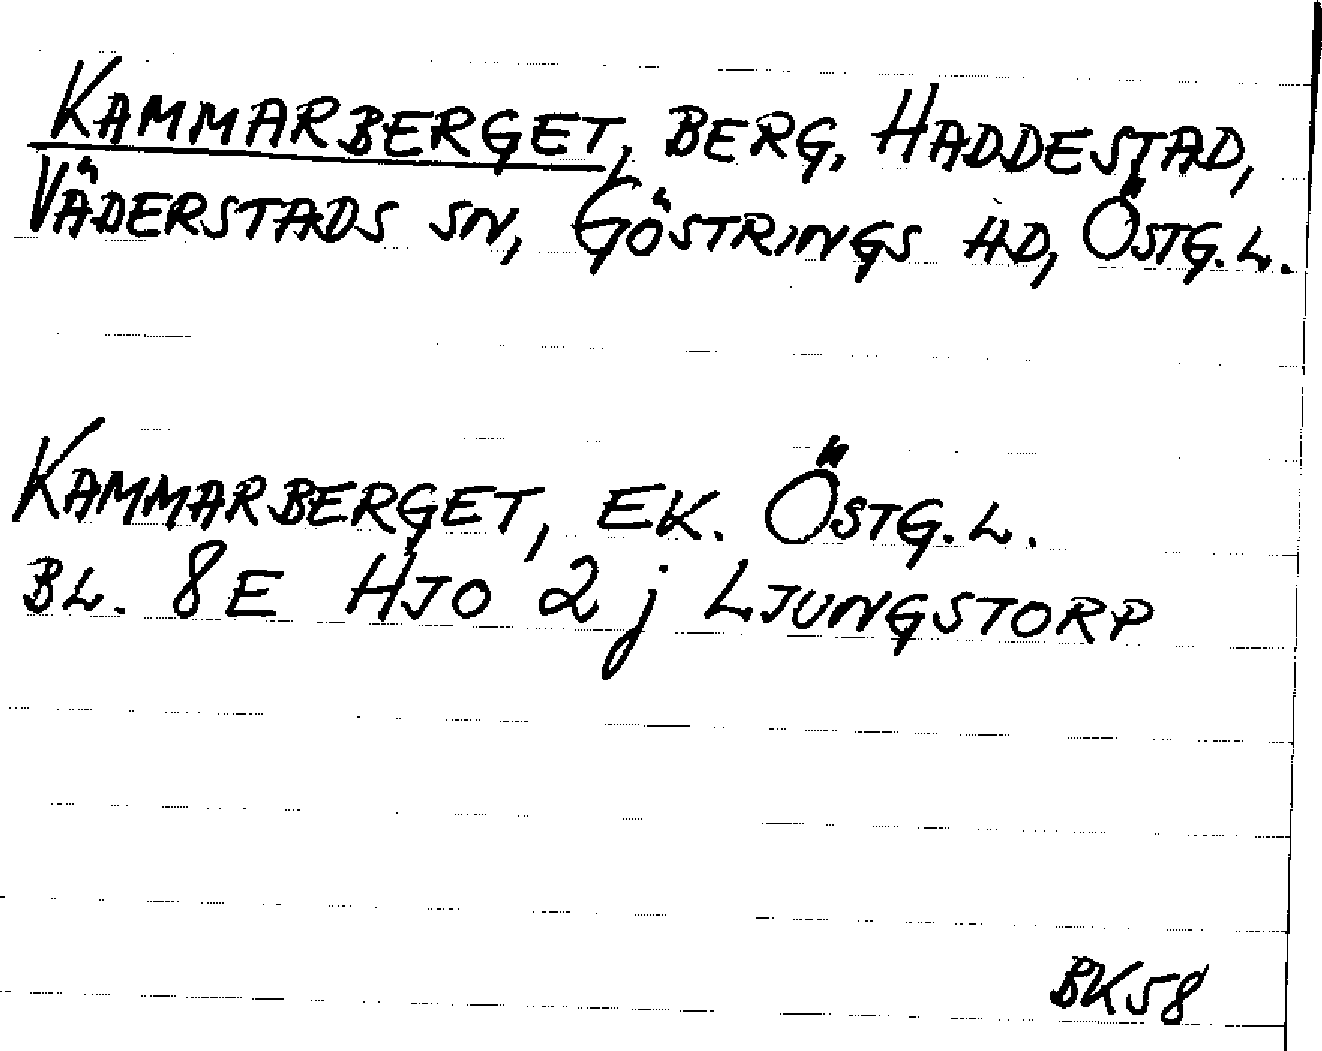 KAMMARBERGET, BERG, HADDESTAD,
VÄDERSTADS SN, GÖSTRINGS HD, ÖSTG.L.
KAMMARBERGET, EK. ÖSTG.L.
BL. 8E HJO 2j LJUNGSTORP
BK58